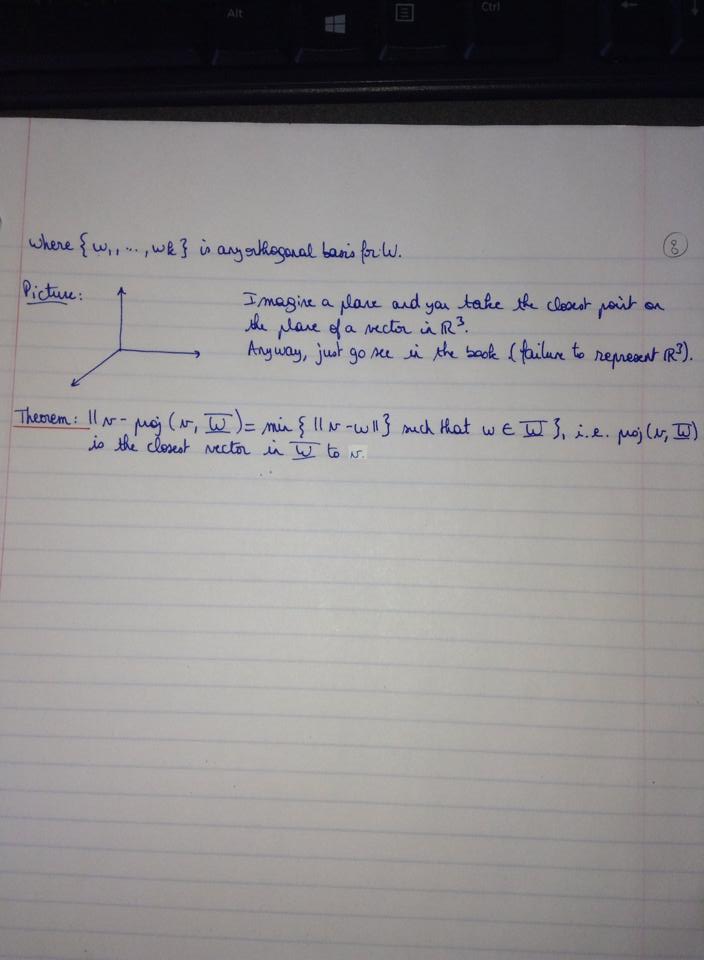 Alt
Ctrl
where {w₁, ..., wk} is any orthogonal basis for W.
8
Picture:
Imagine a plane and you take the closest point on
the plane of a vector in ℝ³.
Anyway, just go see in the book (failure to represent ℝ³).
Theorem: ||v - proj(v, W) = min {||v - w||} such that w ∈ W}, i.e. proj(v, W)
is the closest vector in W to v.